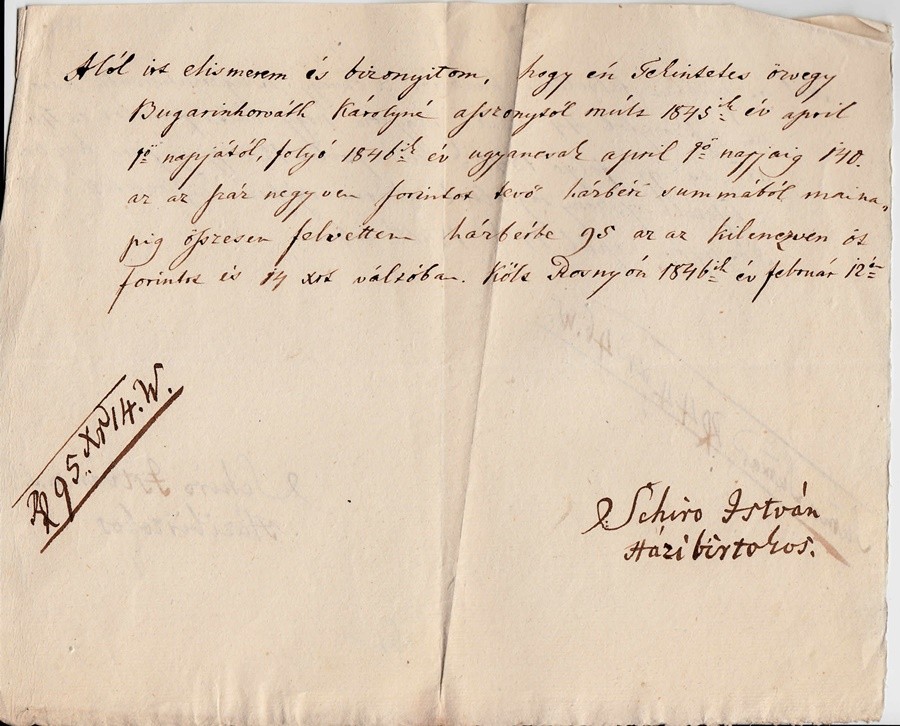 Alól irt elismerem és bizonyitom, hogy én Tekintetes özvegy
Bugarinhorváth Károlyné aſszonytól múlt 1845ik év april
1ső napjától, folyó 1846ik év ugyancsak april 1ső napjaig 140.
az az száz negyven forintot tevő házbéri summából maina,,
pig öſszesen felvettem házbérbe 95 az az kilenczven öt
forintot és 14 xrt váltóba. Költ Rosnyón 1846ik év február 12én
Rf 95. Xr 14. W.
Schiro István
Házi birtokos.